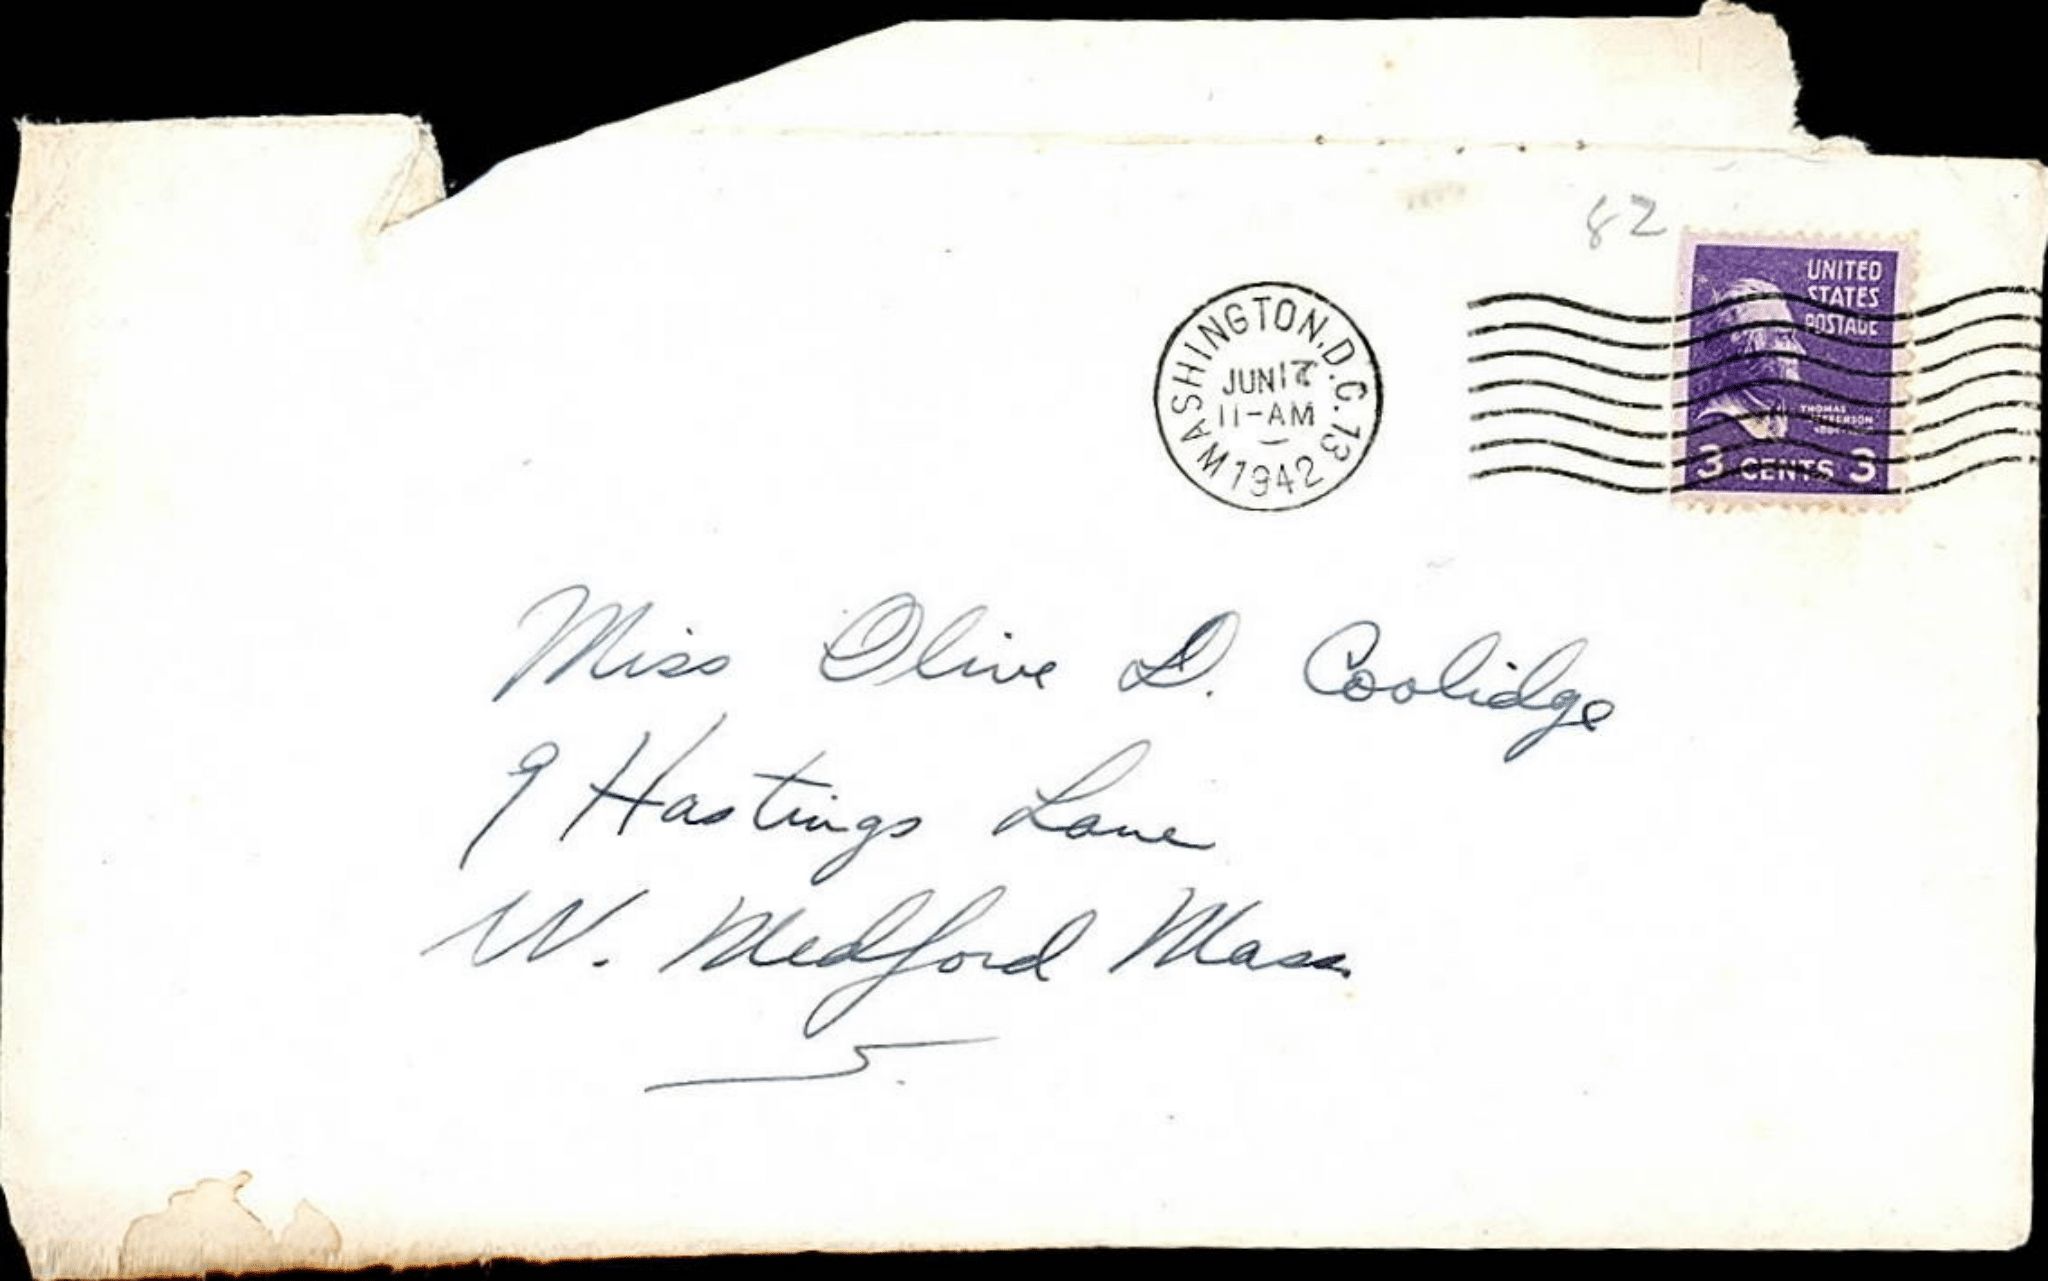 82
UNITED
STATES
POSTAGE
WASHINGTON, D.C. 13
JUN
11-AM
1942
THOMAS
JEFFERSON
3 CENTS 3
Miss Olive D. Coolidge
9 Hastings Lane
W. Medford Mass.